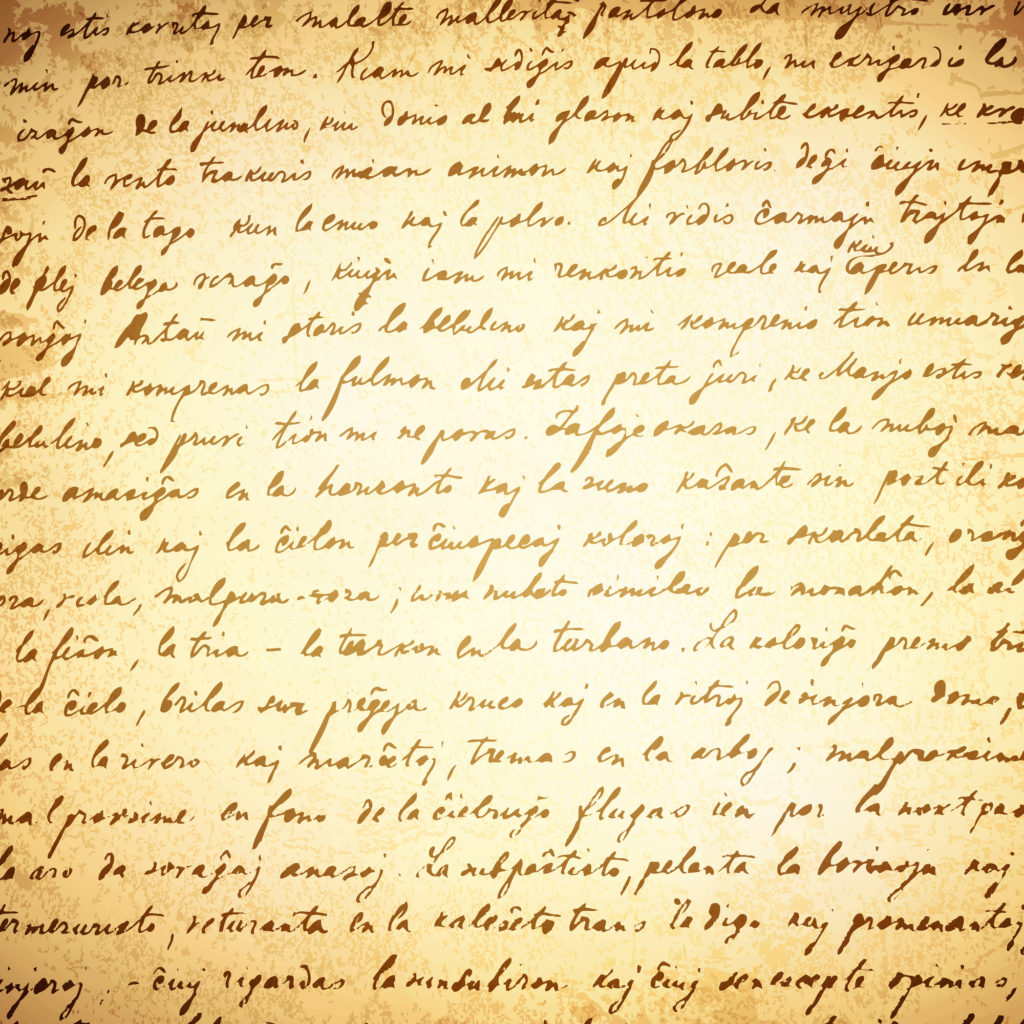 noj estis kovritaj per malalte
min por trinki teon. Kiam mi sidiĝis apud la tablo, mi ekrigardis la
vizaĝon de la junulino, kiu donis al mi glason kaj subite eksentis, ke kva
zaŭ la vento trakuris mian animon kaj forbloris deĝi ĉiujn impre
sojn de la tago kun la enuo kaj la polvo. Mi vidis ĉarmajn trajtojn
de plej belega vizaĝo, kiujn iam mi renkontis reale kaj kiu aperis en la
sonĝoj Antaŭ mi staris la belulino kaj mi komprenis tion unuavig
kiel mi komprenas la fulmon Mi estas preta ĵuri, ke Manjo estis
belulino, sed pruvi tion mi ne povas. Iafoje okazas, ke la nuboj
orde amasiĝas en la horizonto kaj la suno kaŝante sin post ili
rigas ilin kaj la ĉielon per ĉiuspecaj koloroj : per skarlata, oranĝ
oza, viola, malpura-roza ; unu nubeto similas la monaĥon, la al
la fiŝon, la tria – la turkon en la turbano. La koloriĝo prenis tri
de la ĉielo, brilas sur preĝeja kruco kaj en la vitroj de sinjora domo,
las en la rivero kaj marĉetoj, tremas en la arboj ; malproksime
malproksime en fono de la ĉielruĝo flugas ien por la noktpas
la aro da sovaĝaj anasoj. La subpaŝtisto, pelanta la bovinojn kaj
termezuristo, veturanta en la kaleŝeto trans la digo kaj promenantaj
sinjoroj, – ĉiuj rigardas la sunsubiron kaj ĉiuj senescepte opinias,